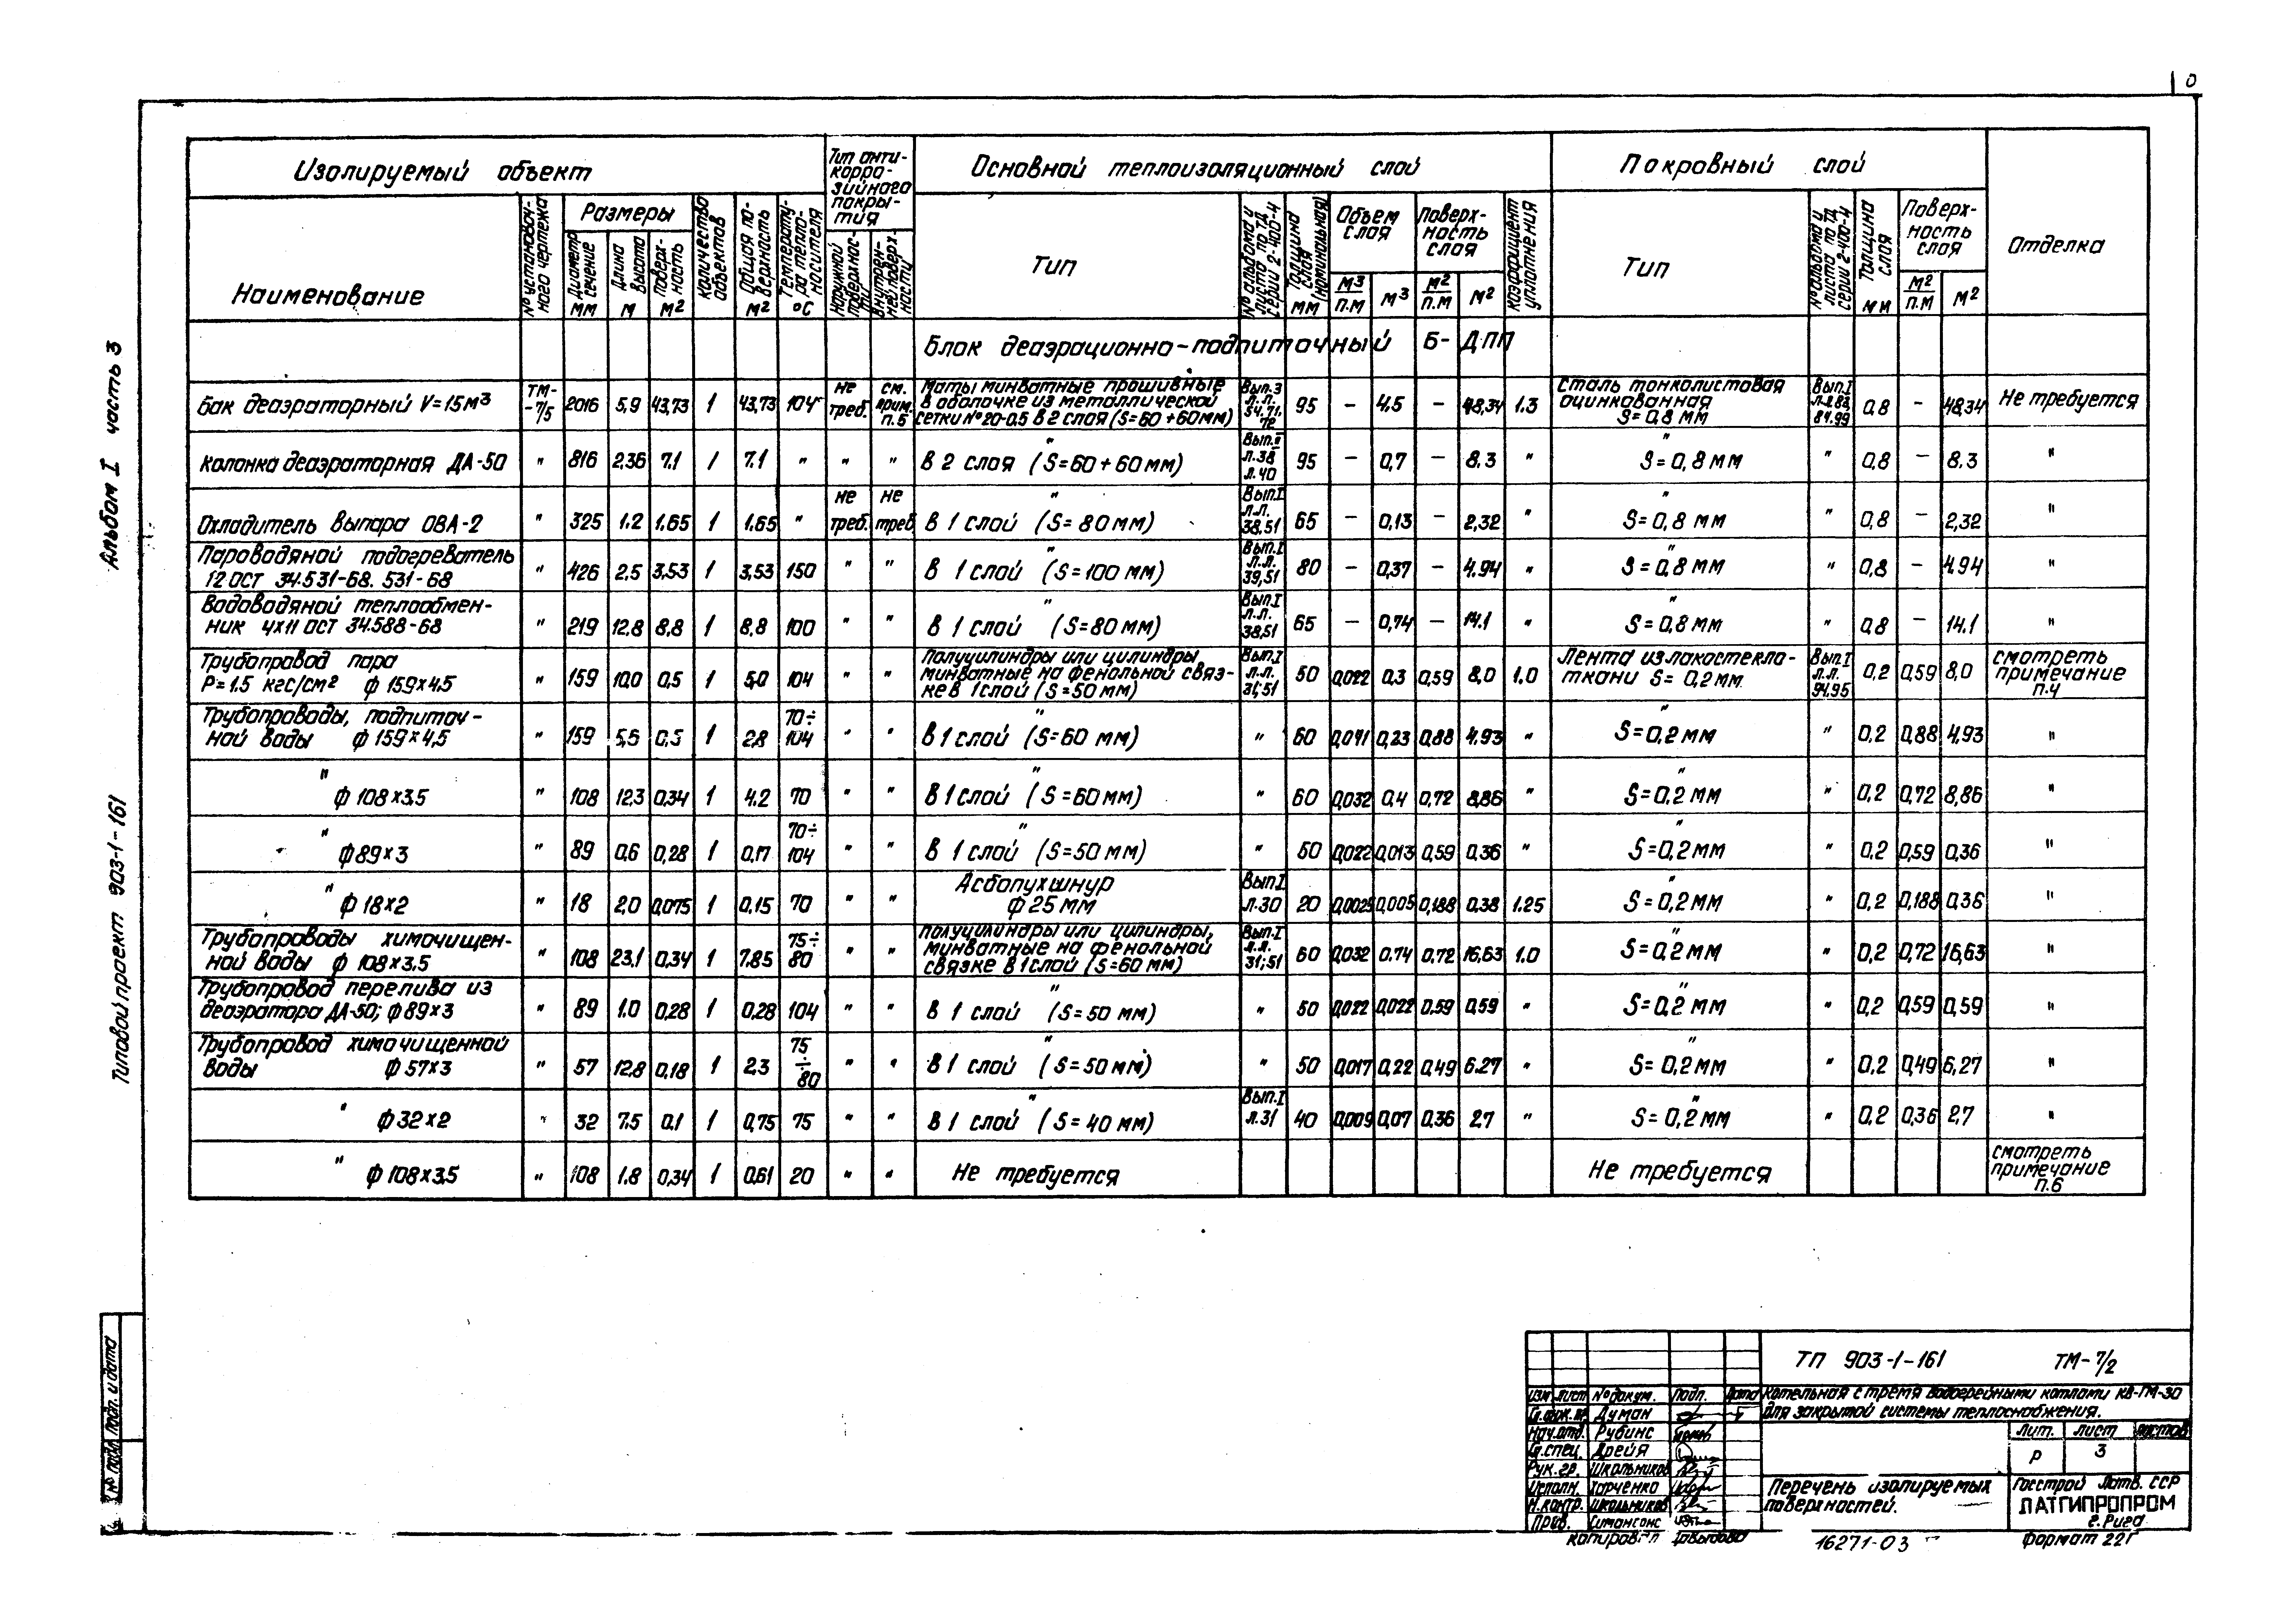 0
Альбом I часть 3
Типовой проект 903-1-161
Изолируемый объект
Тип анти-
корро-
зийного
покры-
тия
Основной теплоизоляционный слой
Покровный слой
Отделка
Наименование
№ установоч-
ного чертежа
Размеры
Диаметр сечение мм
Длина высота м
Поверх-
ность м2
Количество объектов
Общая по-
верхность м2
Температу-
ра тепло-
носителя °С
наружной поверхнос-
ти
внутрен-
ней поверх-
ности
Тип
№ альбома и листа по ТД серии 2-400-4
Толщина слоя (номинальная) мм
Объем слоя
м3/п.м м3
Поверх-
ность слоя
м2/п.м м2
Коэффициент уплотнения
Тип
№ альбома и листа по ТД серии 2-400-4
Толщина слоя мм
Поверх-
ность слоя
м2/п.м м2
Блок деаэрационно-подпиточный Б-ДПП
бак деаэраторный V=15м3 ТМ-7/5 2016 5,9 43,73 1 43,73 104 не треб. см. прим. п.5 Маты минватные прошивные в оболочке из металлической сетки №20-0.5 в 2 слоя (S=60+60мм) Вып.3 л.л. 54.71, 72 95 – 4,5 – 48,34 1.3 Сталь тонколистовая оцинкованная S=0,8 мм Вып.I л.л.83, 84.99 0,8 – 48,34 Не требуется
колонка деаэраторная ДА-50 " 816 2,36 7.1 1 7.1 " " " " в 2 слоя (S=60+60 мм) Вып.II л.38 л.40 95 – 0,7 – 8.3 " " S=0,8 мм " 0,8 – 8.3 "
Охладитель выпара ОВА-2 " 325 1.2 1,65 1 1.65 " не треб. не треб " в 1 слой (S=80мм) Вып.I л.л. 38,51 65 – 0,13 – 2,32 " " S=0,8 мм " 0,8 – 2,32 "
Пароводяной подогреватель 12 ОСТ 34.531-68. 531-68 " 426 2,5 3,53 1 3,53 150 " " " в 1 слой (S=100 мм) Вып.I л.л. 39,51 80 – 0,37 – 4.94 " " S=0,8 мм " 0,8 – 4.94 "
Водоводяной теплообмен-
ник 4х11 ОСТ 34.588-68 " 219 12,8 8,8 1 8,8 100 " " " в 1 слой (S=80мм) Вып.I л.л. 38,51 65 – 0,74 – 14.1 " " S=0,8 мм " 0,8 – 14.1 "
Трубопровод пара Р=1.5 кгс/см2 ф 159×4,5 " 159 10,0 0,5 1 5,0 104 " " Полуцилиндры или цилиндры минватные на фенольной связ-
ке в 1 слой (S=50мм) Вып.I л.л. 31;51 50 0,022 0,3 0,59 8,0 1.0 Лента из лакостекло-
ткани S=0,2мм Вып.I л.л. 94.95 0,2 0,59 8,0 смотреть примечание п.4
Трубопроводы, подпиточ-
ной воды ф 159×4,5 " 159 5,5 0,5 1 2,8 70÷104 " " " в 1 слой (S=60 мм) " 60 0,041 0,23 0,88 4.93 " " S=0,2 мм " 0.2 0,88 4.93 "
" ф 108×3,5 " 108 12,3 0,34 1 4.2 70 " " " в 1 слой (S=60мм) " 60 0,032 0.4 0,72 8,86 " " S=0.2 мм " 0.2 0,72 8,86 "
" ф89×3 " 89 0,6 0,28 1 0,17 70÷104 " " " в 1 слой (S=50 мм) " 50 0,022 0,013 0,59 0,36 " " S=0,2мм " 0.2 0,59 0,36 "
" ф 18×2 " 18 2,0 0,075 1 0,15 70 " " Асбопухшнур ф 25 мм Вып.I л.30 20 0,0025 0,005 0,188 0,38 1.25 " S=0,2 мм " 0,2 0,188 0,36 "
Трубопроводы химочищен-
ной воды ф 108×3,5 " 108 23,1 0,34 1 7,85 75÷80 " " полуцилиндры или цилиндры, минватные на фенольной связке в 1 слой (S=60 мм) Вып.I л.л. 31;51 60 0,032 0.74 0,72 16,63 1.0 " S=0,2 мм " 0,2 0,72 16,63 "
Трубопровод перелива из деаэратора ДА-50; ф89×3 " 89 1.0 0,28 1 0,28 104 " " " в 1 слой (S=50 мм) " 50 0,022 0,022 0.59 0,59 " " S=0.2 мм " 0,2 0,59 0,59 "
Трубопровод химочищенной воды ф 57×3 " 57 12,8 0,18 1 2.3 75÷80 " " " в 1 слой (S=50мм) " 50 0,017 0,22 0,49 6.27 " " S=0,2мм " 0.2 0,49 6,27 "
" ф 32×2 " 32 7.5 0.1 1 0,75 75 " " " в 1 слой (S=40 мм) Вып.I л.31 40 0,009 0,07 0,36 2.7 " " S=0,2 мм " 0.2 0,36 2,7 "
" ф 108×3,5 " 108 1.8 0,34 1 0,61 20 " " Не требуется Не требуется смотреть примечание п.6
ТП 903-1-161 ТМ-7/2
Изм Лист № докум. Подп. Дата
Котельная с тремя водогрейными котлами КВ-ГМ-30
для закрытой системы теплоснабжения.
Гл.инж.пр Думан
Нач.отд. Рубинс
Гл.спец. Дрейя
Рук.гр. Школьников
Исполн. Харченко
Н.контр. Школьников
Пров. Симансонс
Лит. Лист Листов
Р 3
Перечень изолируемых
поверхностей.
Госстрой Латв. ССР
ЛАТГИПРОПРОМ
г. Рига
Копировал
16271-03
Формат 22Г
№ подл. Подп. и дата